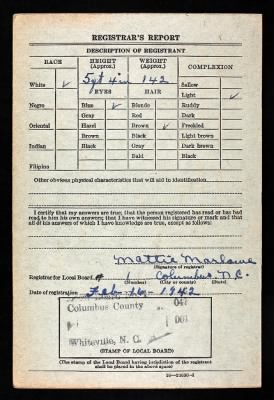 REGISTRAR'S REPORT
DESCRIPTION OF REGISTRANT
RACE HEIGHT (Approx.) WEIGHT (Approx.) COMPLEXION
White ✓ 5ft 4in 142 Sallow
EYES HAIR Light ✓
Negro Blue ✓ Blonde Ruddy
Gray Red Dark
Oriental Hazel Brown ✓ Freckled
Brown Black Light brown
Indian Black Gray Dark brown
Bald Black
Filipino
Other obvious physical characteristics that will aid in identification
I certify that my answers are true; that the person registered has read or has had
read to him his own answers; that I have witnessed his signature or mark and that
all of his answers of which I have knowledge are true, except as follows:
Mattie Marlowe
(Signature of registrar)
Registrar for Local Board # 1 Columbus, N.C.
(Number) (City or county) (State)
Date of registration Feb-16-1942
Columbus County 047
001
Whiteville, N. C.
(STAMP OF LOCAL BOARD)
(The stamp of the Local Board having jurisdiction of the registrant
shall be placed in the above space)